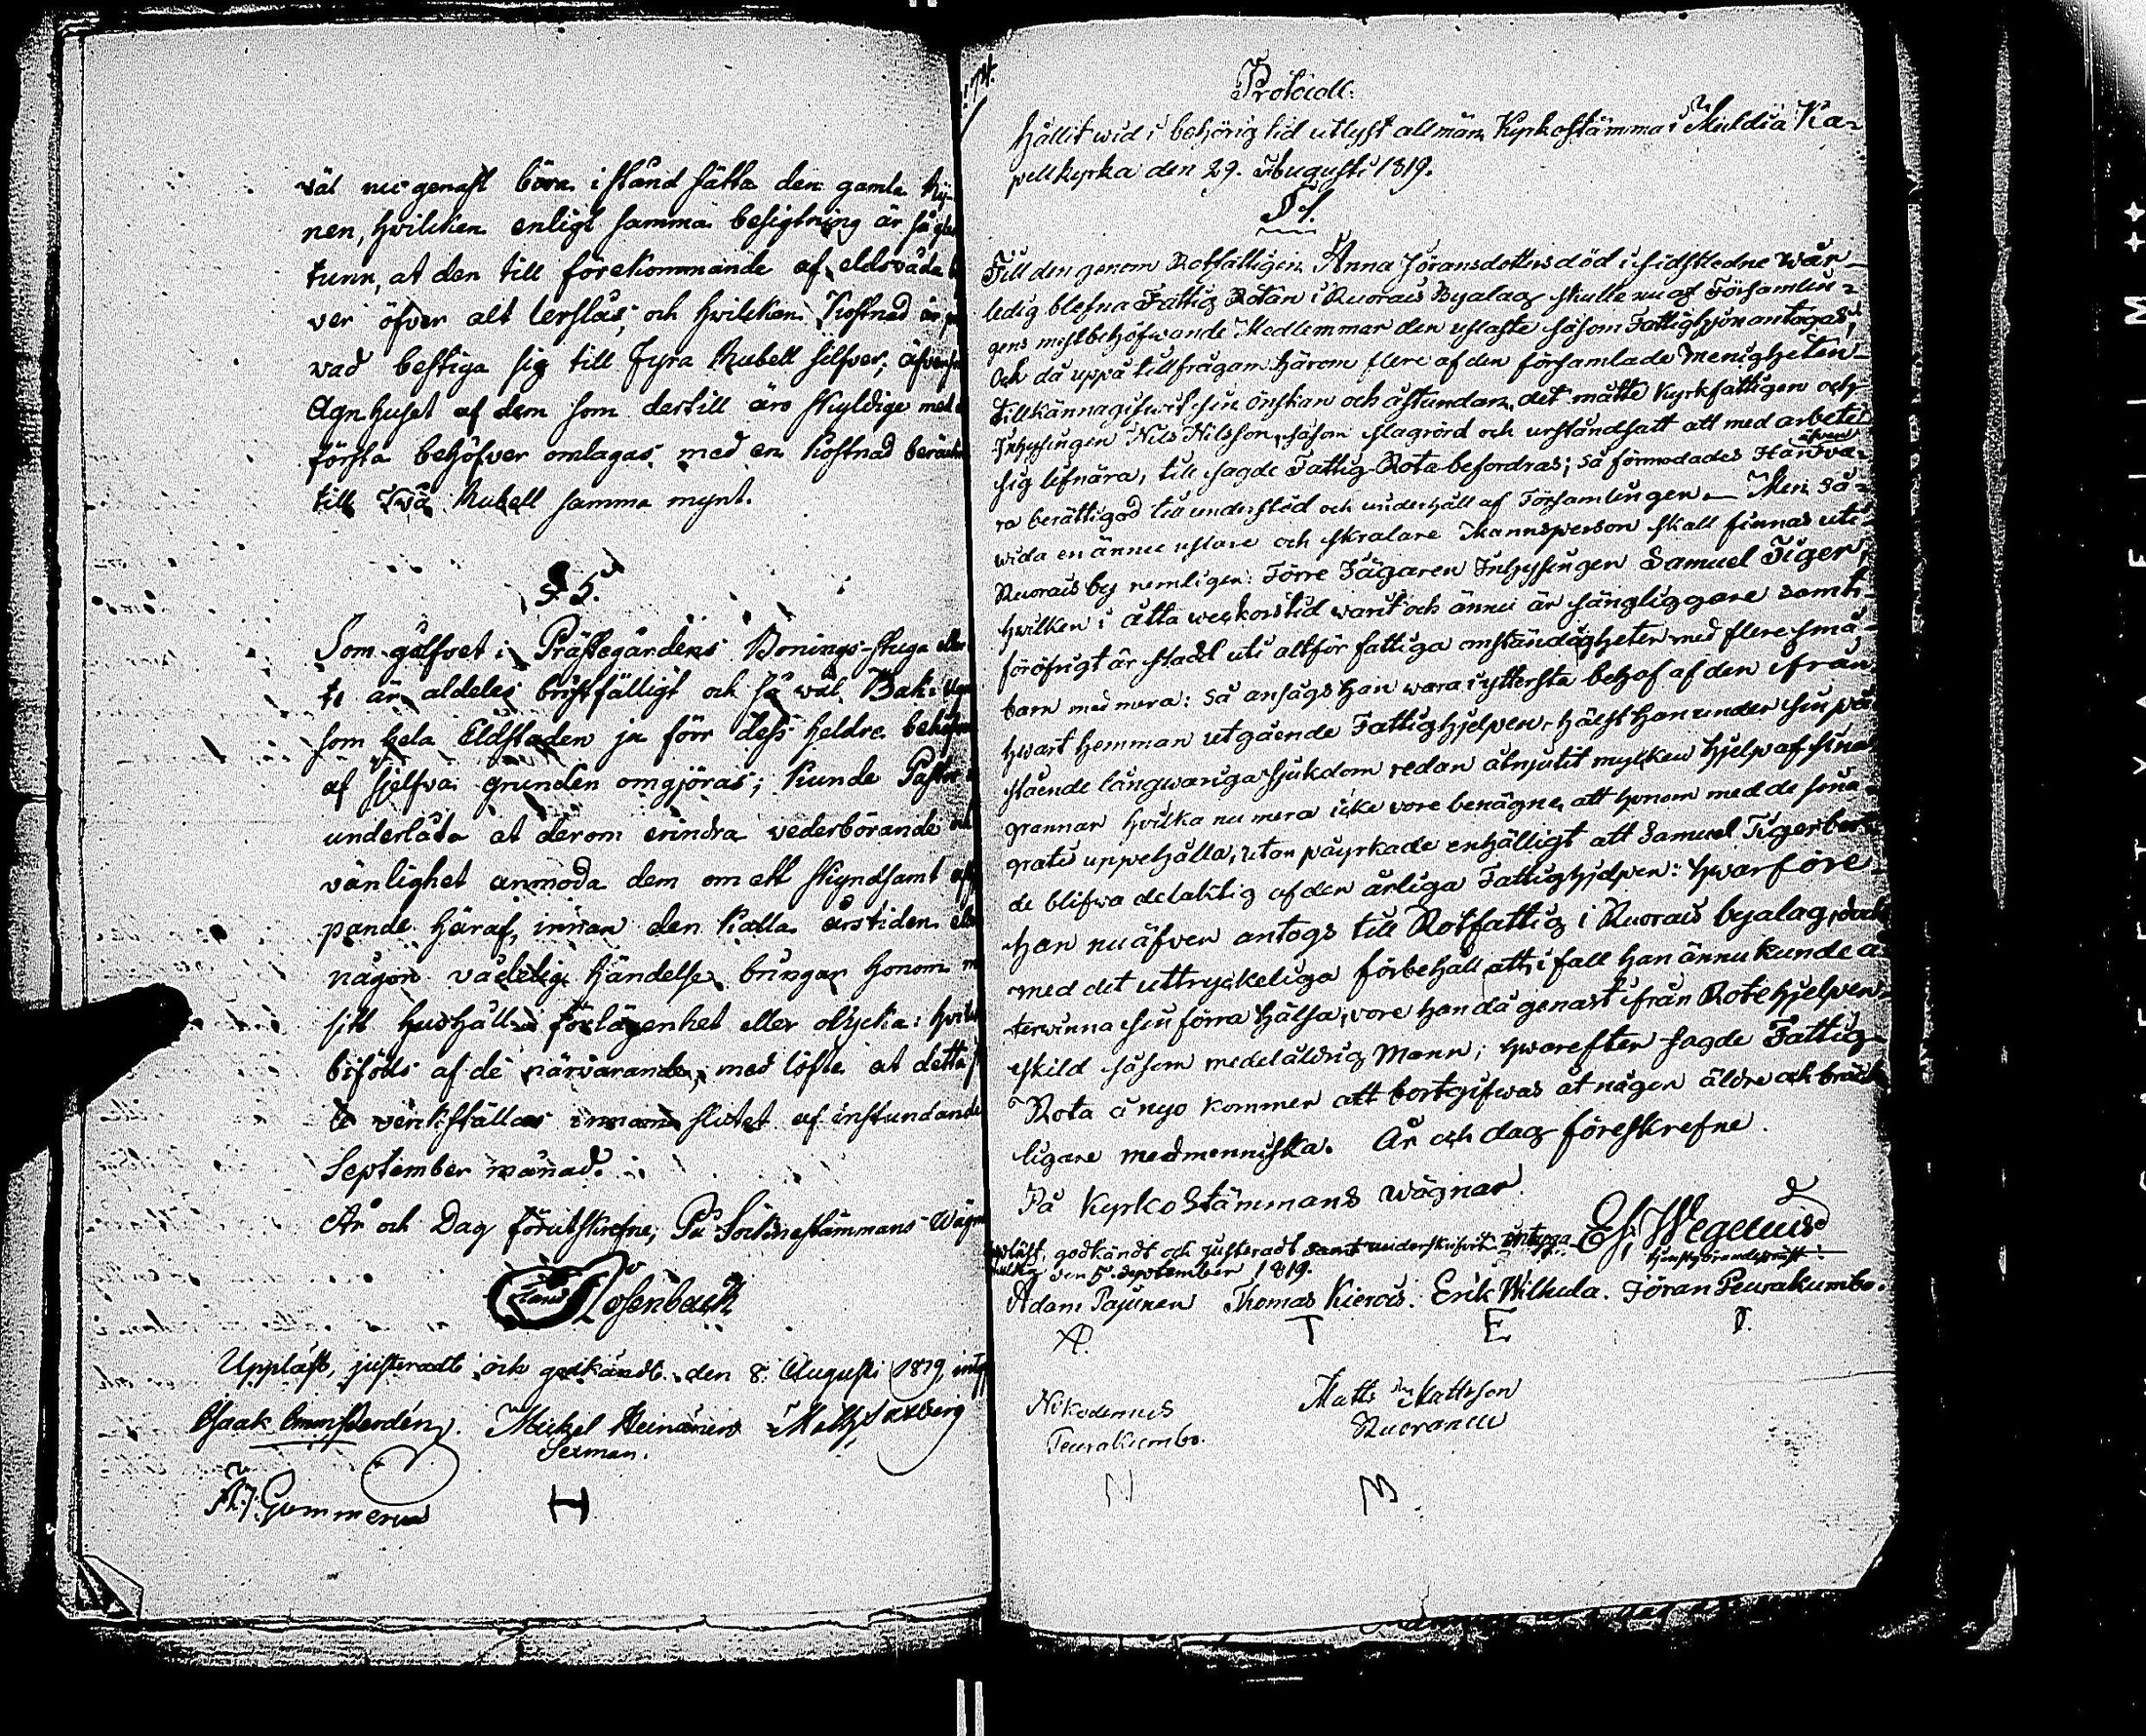 väl nu genast böra i stånd sätta den gamla
nen, hvilcken enligt samma besigtning är så
tunn, at den till förekommande af eldsvåda
ver öfver alt lerslås, och hvilcken Kostnad är
vad bestiga sig till Fyra Rubell silfver, äfven
Agnhuset af dem som dertill äro skyldige med
första behöfver omlagas med en Kostnad beräck
till Två Rubell samma mynt.
§ 5.
Som gålfvet i Prästegårdens Bonings-stuga
te är aldeles bristfälligt och så wäl Bak-
som hela Eldstaden ju förr dess heldre behöfver
af sjelfva grunden omgjöras; kunde Pastor
underlåta at derom erindra vederbörande
vänlighet anmoda dem om ett skyndsamt
pande häraf, innan den kalla årstiden
någon vådelig händelse bringar honom
sitt hushåll i förlägenhet eller olycka:
biföls af de närvarande, med löfte at detta
te verkställas innom slutet af instundande
September månad.
År och Dag förutskrefne, På Socknestämmans Wägn
Claes Rosenback
Uppläst, justeradt och godkändt den 8. Augusti 1819,
Isaak Michel Heinänen Matts
Sexman.
Gummerus
H
Protocoll.
hållit wid i behörig tid utlyst allmän Kyrkostämma i Muldia Ka-
pellkyrka den 29. Augusti 1819.
§ 1.
Till den genom Rotfattigen Anna Jöransdotters död i sidstledne wår
ledig blefna Fattig Rotan i Ruorais Byalag skulle nu af Församlin-
gens mest behöfwande Medlemmar den uslaste såsom Fattighjon antagas;
Och då uppå tillfrågan härom flere af den församlade Menigheten
tillkännagifwit sin önskan och åstundan, det måtte Kyrkfattigen och
Inhysingen Nils Nilsson, såsom slagrörd och urståndsatt att med arbete
sig lifnära, till sagde Fattig-Rota befordras; så förmodades Han äfven va-
ra berättigad till understöd och underhåll af Församlingen — Men så-
wida en ännu uslare och skralare Mansperson skall finnas uti
Ruorais by nemligen: Förre Jägaren Inhysingen Samuel Tiger,
hwilken i åtta weckors tid warit och ännu är sängliggare samt
föröfrigt är stadd uti altför fattiga omständigheter med flere små
barn med mera: så ansågs han wara i yttersta behof af den ifrån
hwart hemman utgående Fattighjelpen, hälst han under sin på
stående långwariga sjukdom redan åtnjutit mycken hjelp af sina
grannar hvilka nu mera icke vore benägne att honom med de sina
gratis uppehålla, utan påyrkade enhälligt att Samuel Tiger bor
de blifwa delaktig af den årliga Fattighjelpen: hwarföre
han nu äfven antogs till Rotfattig i Ruorais byalag, dock
med det uttryckeliga förbehåll att, i fall han ännu kunde å
terwinna sin förra hälsa, vore han då genast ifrån Rotehjelpen
skild såsom medelåldrig Mann; hwarefter sagde Fattig
Rota å nyo kommer att bortgifwas åt någon äldre och bräck
ligare medmenniska. År och dag föreskrefne.
På Kyrkostämmans wägnar
Es. Wegelius
tjenstgörande präst
Upläst, godkändt och justeradt samt underskrifvit intyga
den 5. September 1819.
Adam Pajunen Thomas Kierois. Erik Wilkula. Jöran Peurakumbo.
AP. T E J.
Nikodemus Matts Mattsson
Peurakumbo. Ruoranen
N M